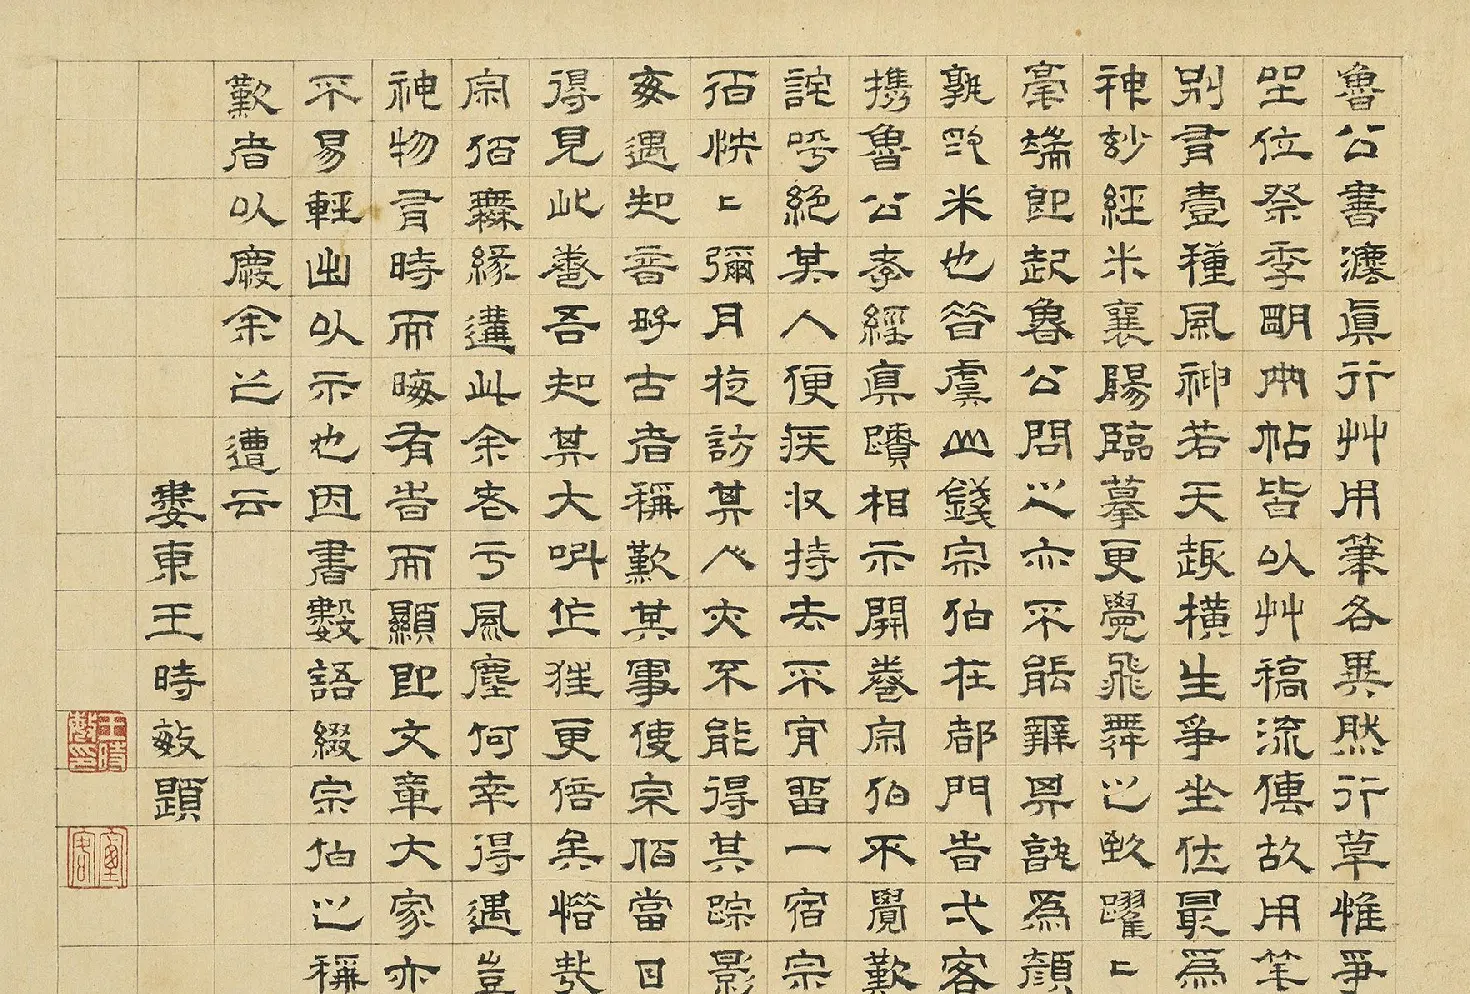 魯公書灋真行艸用筆各異然行草惟爭
坐位祭季朙兩帖皆以艸稿流傳故用笔
別有壹種風神若天趣橫生爭坐位最為
神妙經米襄陽臨摹更覺飛舞之致躍〻
毫端即起魯公問之亦不能辨孰為顏
孰為米也昔虞山錢宗伯在都門旹弌客
攜魯公孝經真蹟相示開卷宗伯不覺歎
詫呼絕其人便疾收持去不肎留一宿宗
伯怏〻彌月訪其人不能得其踪影
每遇知音好古者稱歎其事使宗伯當日
得見此卷吾知其大叫作狂更倍矣惜哉
宗伯無緣遘此余老亏風塵何幸得遇豈
神物有時而晦有旹而顯即文章大家亦
不易輕出以示也因書數語綴宗伯之稱
歎者以慶余之遭云
婁東王時敏題
王時敏印